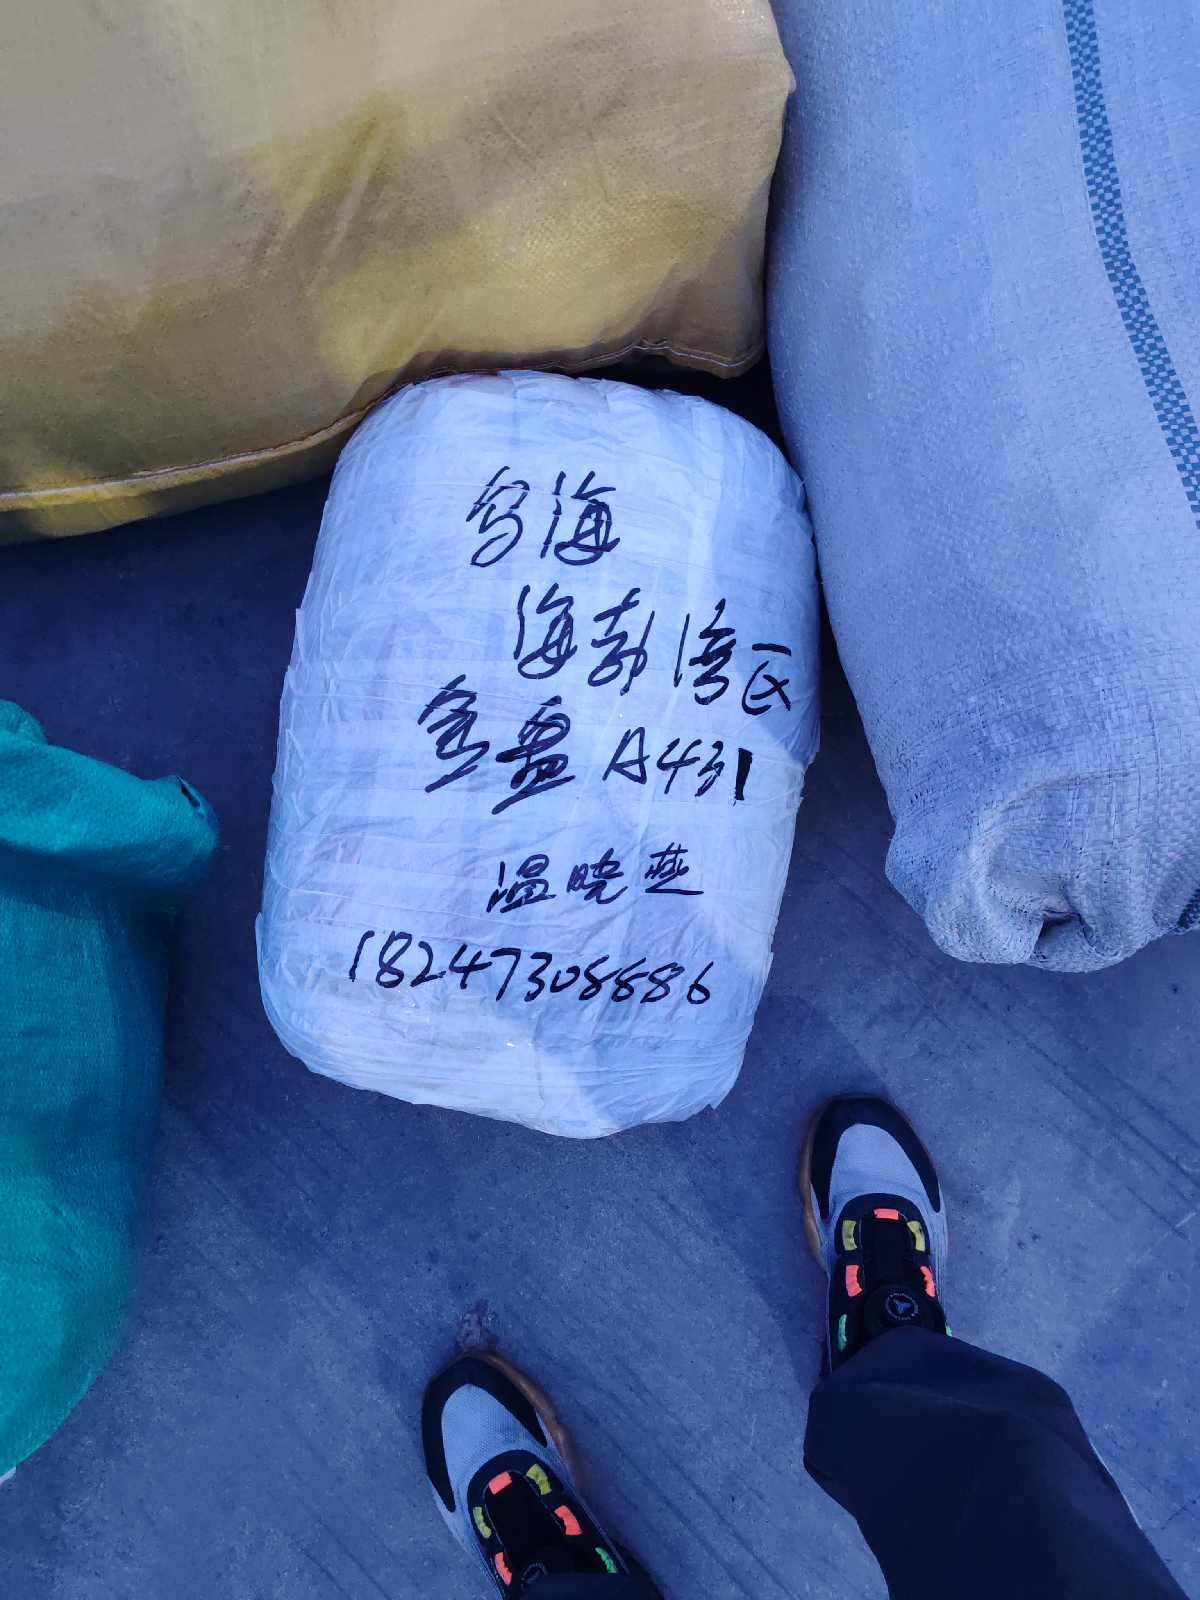 乌海
海勃湾区
金盈A431
温晓燕
18247308886